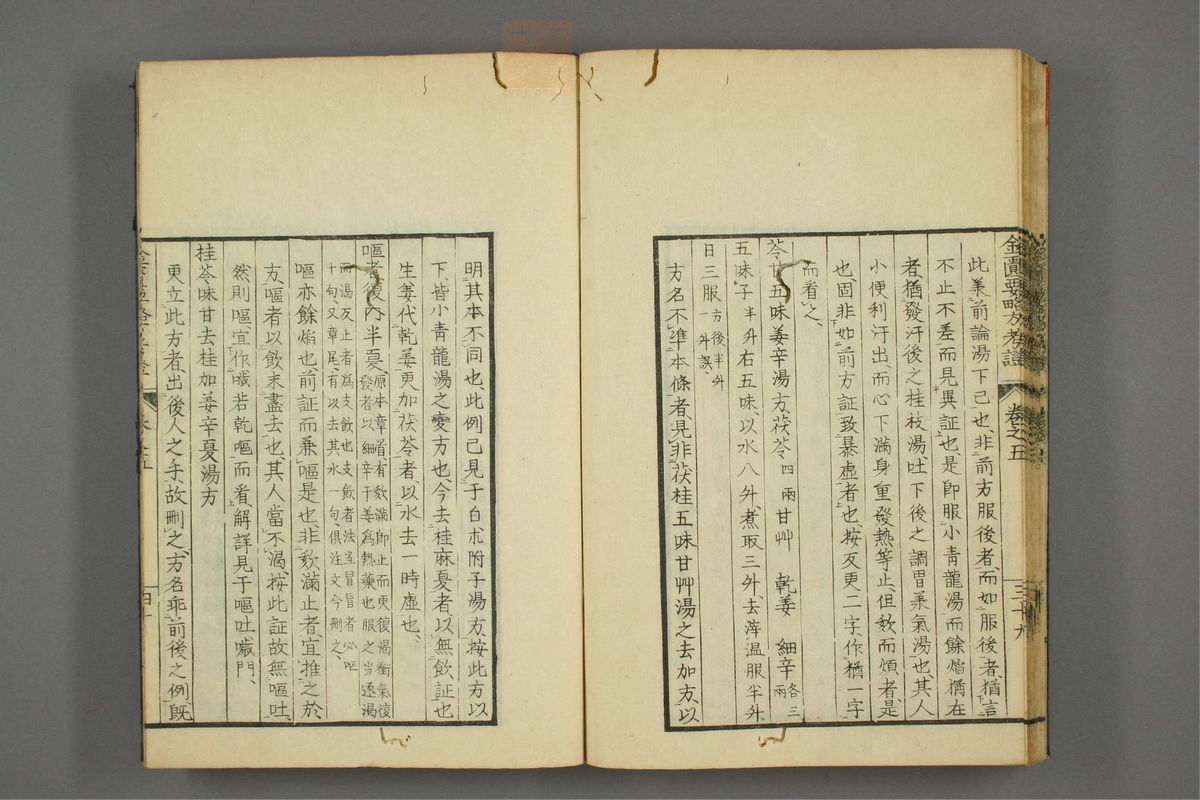 金匱要略方考證 卷之五 三十九
此承前論湯下已也、非前方服後者、而如服後者、猶言
不止不差而見異証也、是卽服小青龍湯而餘焰猶在
者、猶發汗後之桂枝湯、吐下後之調胃承氣湯也、其人
小便利汗出、而心下滿身重發熱等止、但欬而煩者、是
也、固非如前方証致暴虛者也、按反更二字、作猶一字
而看之、
苓甘五味姜辛湯方、茯苓四兩甘艸 乾姜 細辛各三兩
五味子半升右五味、以水八升、煮取三升、去滓、溫服半升
日三服方後半升一升誤、
方名不準本條者、見非茯桂五味甘艸湯之去加方、以
明其本不同也、此例已見于白朮附子湯方、按此方以
下、皆小青龍湯之變方也、今去桂麻夏者、以無飲証也
生姜代乾姜、更加茯苓者、以水去一時虛也、
嘔者復內半夏、原本章首、有欬滿卽止而更復渴衝氣復
發者以細辛于姜爲熱藥也服之当遂渴
而渴反止者爲支飲也支飲者法当冒冒者必嘔
十句、又章尾、有以去其水一句、俱注文今刪之、
嘔亦餘焰也、前証而兼嘔是也、非欬滿止者、宜推之於
方、嘔者以飲未盡去也、其人當不渴、按此証故無嘔吐、
然則嘔、宜作噦若乾嘔而看、解詳見于嘔吐噦門、
桂苓味甘去桂加姜辛夏湯方
更立此方者、出後人之手、故刪之、方名乖前後之例、既